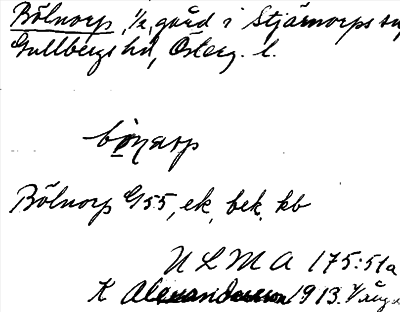 Bölnorp, 1/2, gård i Stjärnorps sn
Gullbergs hd, Österg. l.
bönarp
Bölnorp G 55, ek, bek. kb
ULMA 175:51a
K Alexanderson 1913.